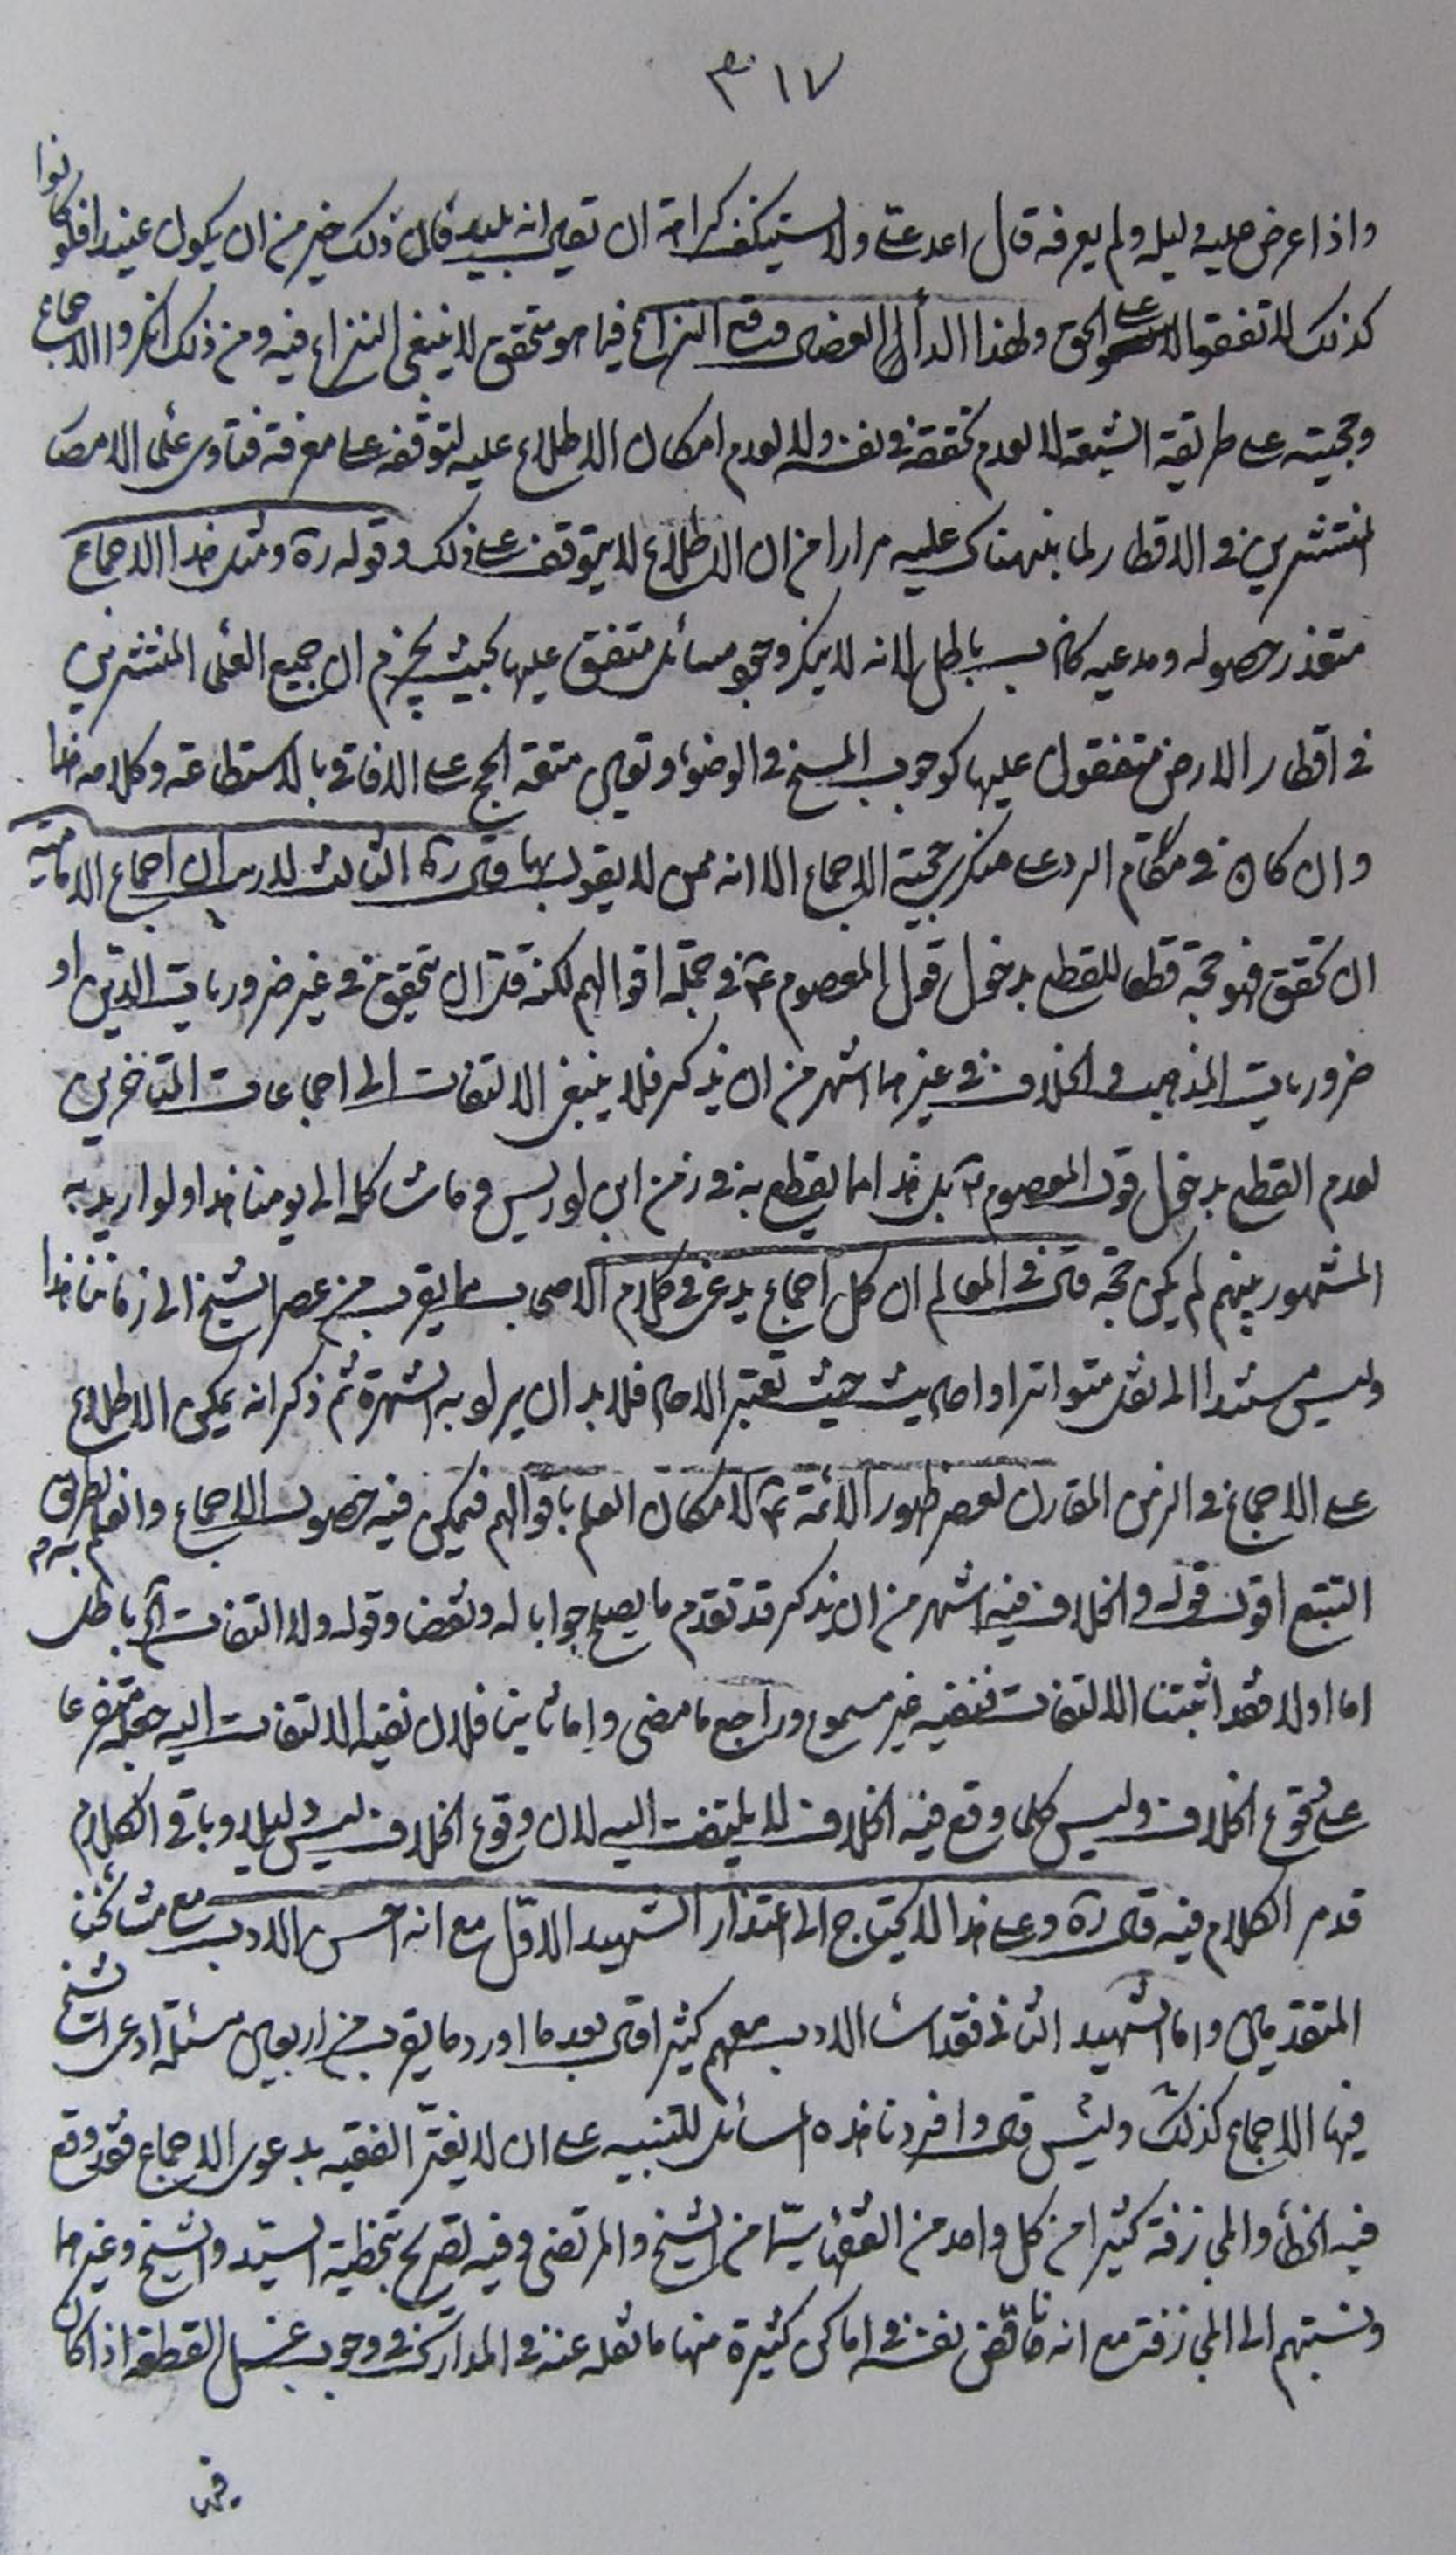 ٣١٧
واذا عرض عليه دليله ولم يعرفه قال اعد علي ولا يستنكف كراهة ان تعيى انه بليد فان ذلك خير من ان يكون عنيدا فلو كانوا
كذلك لاتفقوا على الحق ولهذا الداء العضال وقع النزاع فيما هو متحقق لا ينبغي النزاع فيه ومن ذلك انكروا الاجماع
وحجيته على طريقة الشيعة لا لعدم تحققه في نفسه ولا لعدم امكان الاطلاع عليه لتوقفه على معرفة فتاوى علماء الامصار
المنتشرين في الاقطار لما نبهناك عليه مرارا من ان الاطلاع لا يتوقف على ذلك وقوله ره ومثل هذا الاجماع
متعذر حصوله ومدعيه كاذب باطل لانه لا ينكر وجود مسائل متفق عليها بحيث يجزم ان جميع العلماء المنتشرين
في اقطار الارض متفقون عليها كوجوب المسح في الوضوء وتعين متعة الحج على الافاقي بالاستطاعة وكلامه هذا
وان كان في مقام الرد على منكر حجية الاجماع الا انه ممن لا يقول بها قال ره الثالث لا ريب ان اجماع الامامية
ان تحقق فهو حجة قطعا للقطع بدخول قول المعصوم ع في جملة اقوالهم لكنه قل ان يتحقق في غير ضروريات الدين او
ضروريات المذهب والخلاف في غيرهما اشهر من ان يذكر فلا ينبغي الالتفات الى اجماعات المتاخرين
لعدم القطع بدخول قول المعصوم ع بل هذا مما يقطع به في زمن ابن ادريس وما شاكله الى يومنا هذا ولو اريد به
المشهور بينهم لم يكن حجة قال في المعالم ان كل اجماع يدعى في كلام الاصحاب مما يقرب من عصر الشيخ الى زماننا هذا
وليس مستندا الى نقل متواتر او احاديث حيث تعتبر الاحاد فلا بد ان يراد به الشهرة ثم ذكر انه يمكن الاطلاع
على الاجماع في الزمن المقارن لعصر ظهور الائمة ع لامكان العلم باقوالهم فيمكن فيه حصول الاجماع والعلم به بطريق
التتبع اقول قوله والخلاف فيه اشهر من ان يذكر قد تقدم ما يصلح جوابا له ونقضا وقوله ولا التفات آه باطل
اما اولا فقد اثبتنا الالتفات فنفيه غير مسموع وراجع ما مضى واما ثانيا فلان نفيه الالتفات اليه جعله متفرعا
على وقوع الخلاف وليس كلما وقع فيه الخلاف لا يلتفت اليه لان وقوع الخلاف ليس دليلا وباقي الكلام
قد مر الكلام فيه قال ره وعلى هذا لا يحتاج الى اعتذار الشهيد الاول مع انه احسن الادب مع مشائخنا
المتقدمين واما الشهيد الثاني فقد اساء الادب معهم كثيرا قال بعد ما اورد ما يقرب من اربعين مسئلة ادعى الشيخ
فيها الاجماع كذلك وليس قال وافردنا هذه المسائل للتنبيه على ان لا يغتر الفقيه بدعوى الاجماع فقد وقع
فيه الخطاء والمجازفة كثيرا من كل واحد من الفقهاء سيما من الشيخ والمرتضى وفيه تصريح بتخطئة السيد والشيخ وغيرهما
ونسبتهم الى المجازفة مع انه ناقض نفسه في اماكن كثيرة منها ما نقله عنه في المدارك في وجوب غسل القطعة اذا كان
فيها